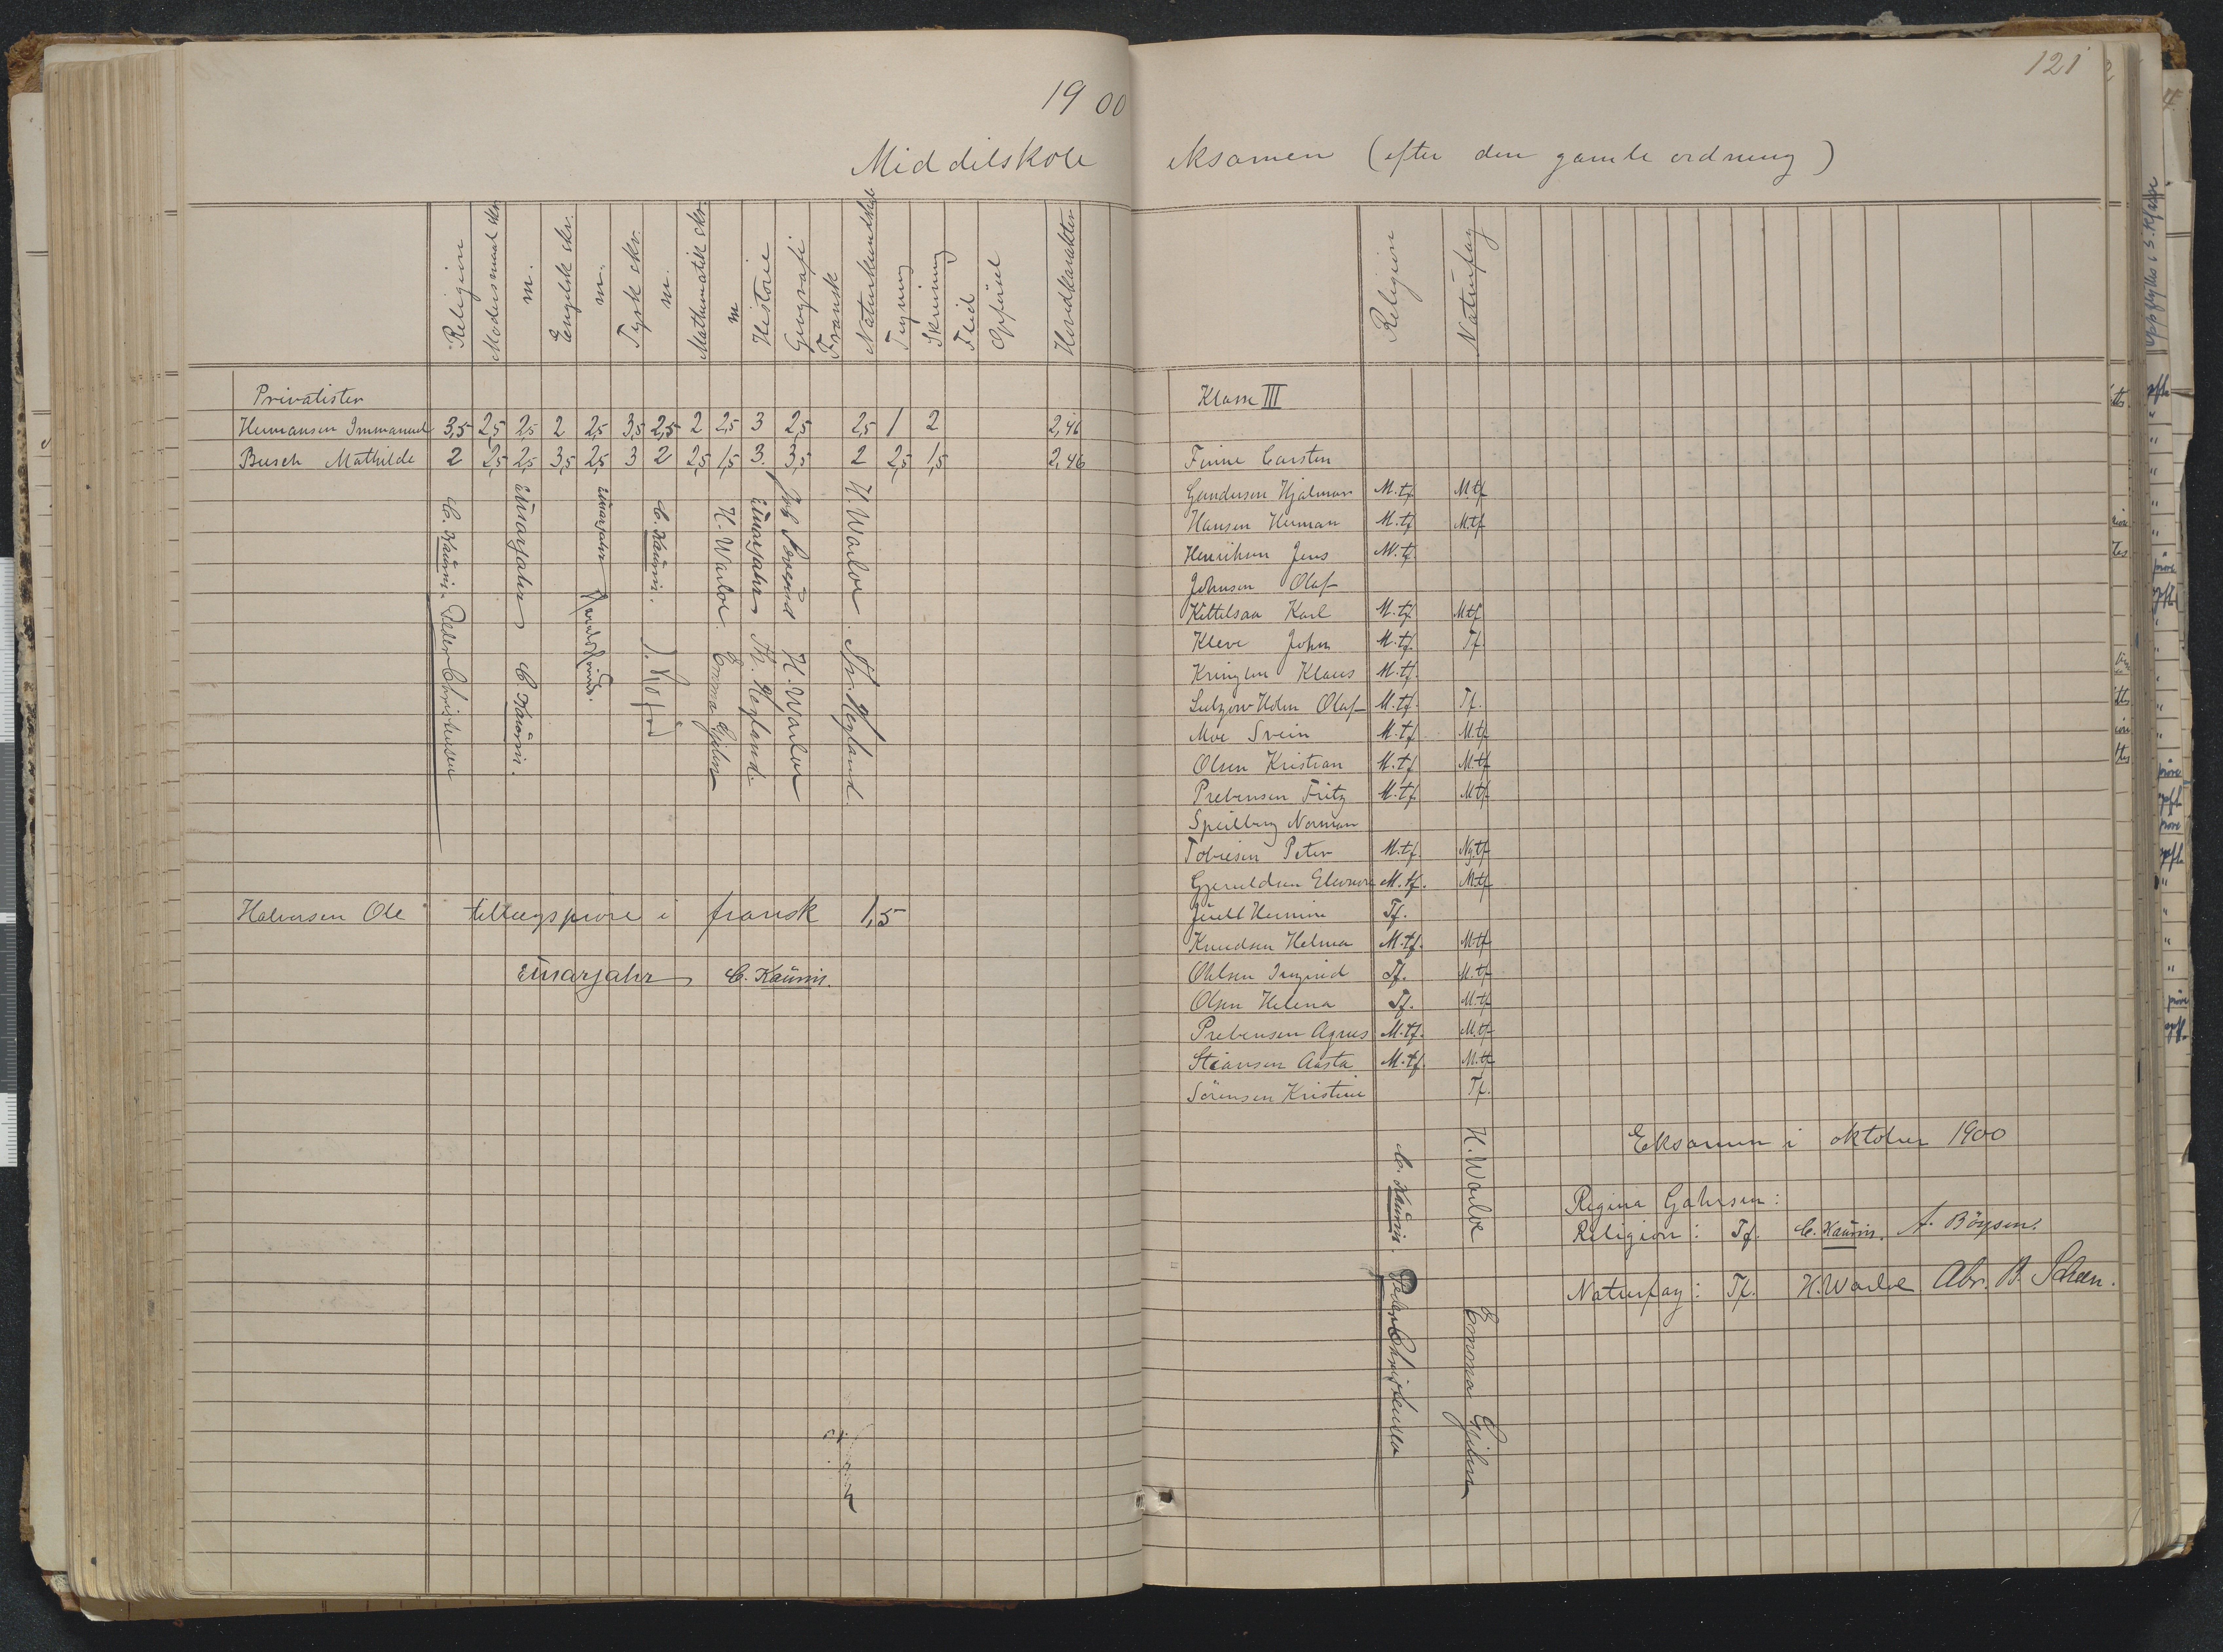 19 00
121
Middelskole eksamen (efter den gamle ordning)
Religion
Modersmaal skr.
m.
Engelsk skr.
m.
Tysk skr.
m.
Mathematik skr.
m
Historie
Geografi
Fransk
Naturkundskab
Tegning
Skrivning
Flid
Opførsel
Hovedkarakter
Privatister
Hermansen Immanuel 3,5 2,5 2,5 2 2,5 3,5 2,5 2 2,5 3 2,5 2,5 1 2 2,46
Busch Mathilde 2 2,5 2,5 3,5 2,5 3 2 2,5 1,5 3. 3,5 2 2,5 1,5 2,46
C. Kaurin. Peder Christensen
Einarjahr C. Kaurin.
Einarjahr
C. Kaurin.
H. Warloe. Emma Gjehn
Einarjahr Th. Hegland.
H. Warloe
H. Warloe. Th. Hegland.
Halvorsen Ole tillægsprøve i fransk 1,5
Einarjahr C. Kaurin.
Religion
Naturfag
Klasse III
Finne Carsten
Gundersen Hjalmar M.tf. Mtf
Hansen Herman M.tf Mtf
Henriksen Jens M.tf
Johnsen Olaf
Kittelsaa Karl M.tf. Mtf
Kleve John M.tf. Tf.
Kringlen Klaus M.tf.
Lutzow-Holm Olaf M.tf. Tf.
Moe Svein M.tf. M.tf
Olsen Kristian M.tf. M.tf
Prebensen Fritz M.tf. Mtf
Speilberg Norman
Tobiesen Peter M.tf. Ng.tf
Gjeruldsen Eleonore M.tf. M.tf
Juell Hermine Tf.
Knudsen Helma M.tf. M.tf
Ohlsen Ingrid Tf. M.tf
Olsen Helena Tf. M.tf
Prebensen Agnes M.tf. M.tf
Stiansen Aasta M.tf. M.tf
Sørensen Kristine Tf.
C. Kaurin. Peder Christensen
H. Warloe Emma Gjehn
Eksamen i oktober 1900
Regina Gahrsen:
Religion: Tf. C. Kaurin. A. Böysen.
Naturfag: Tf. H. Warloe Abr. B. Scheen.